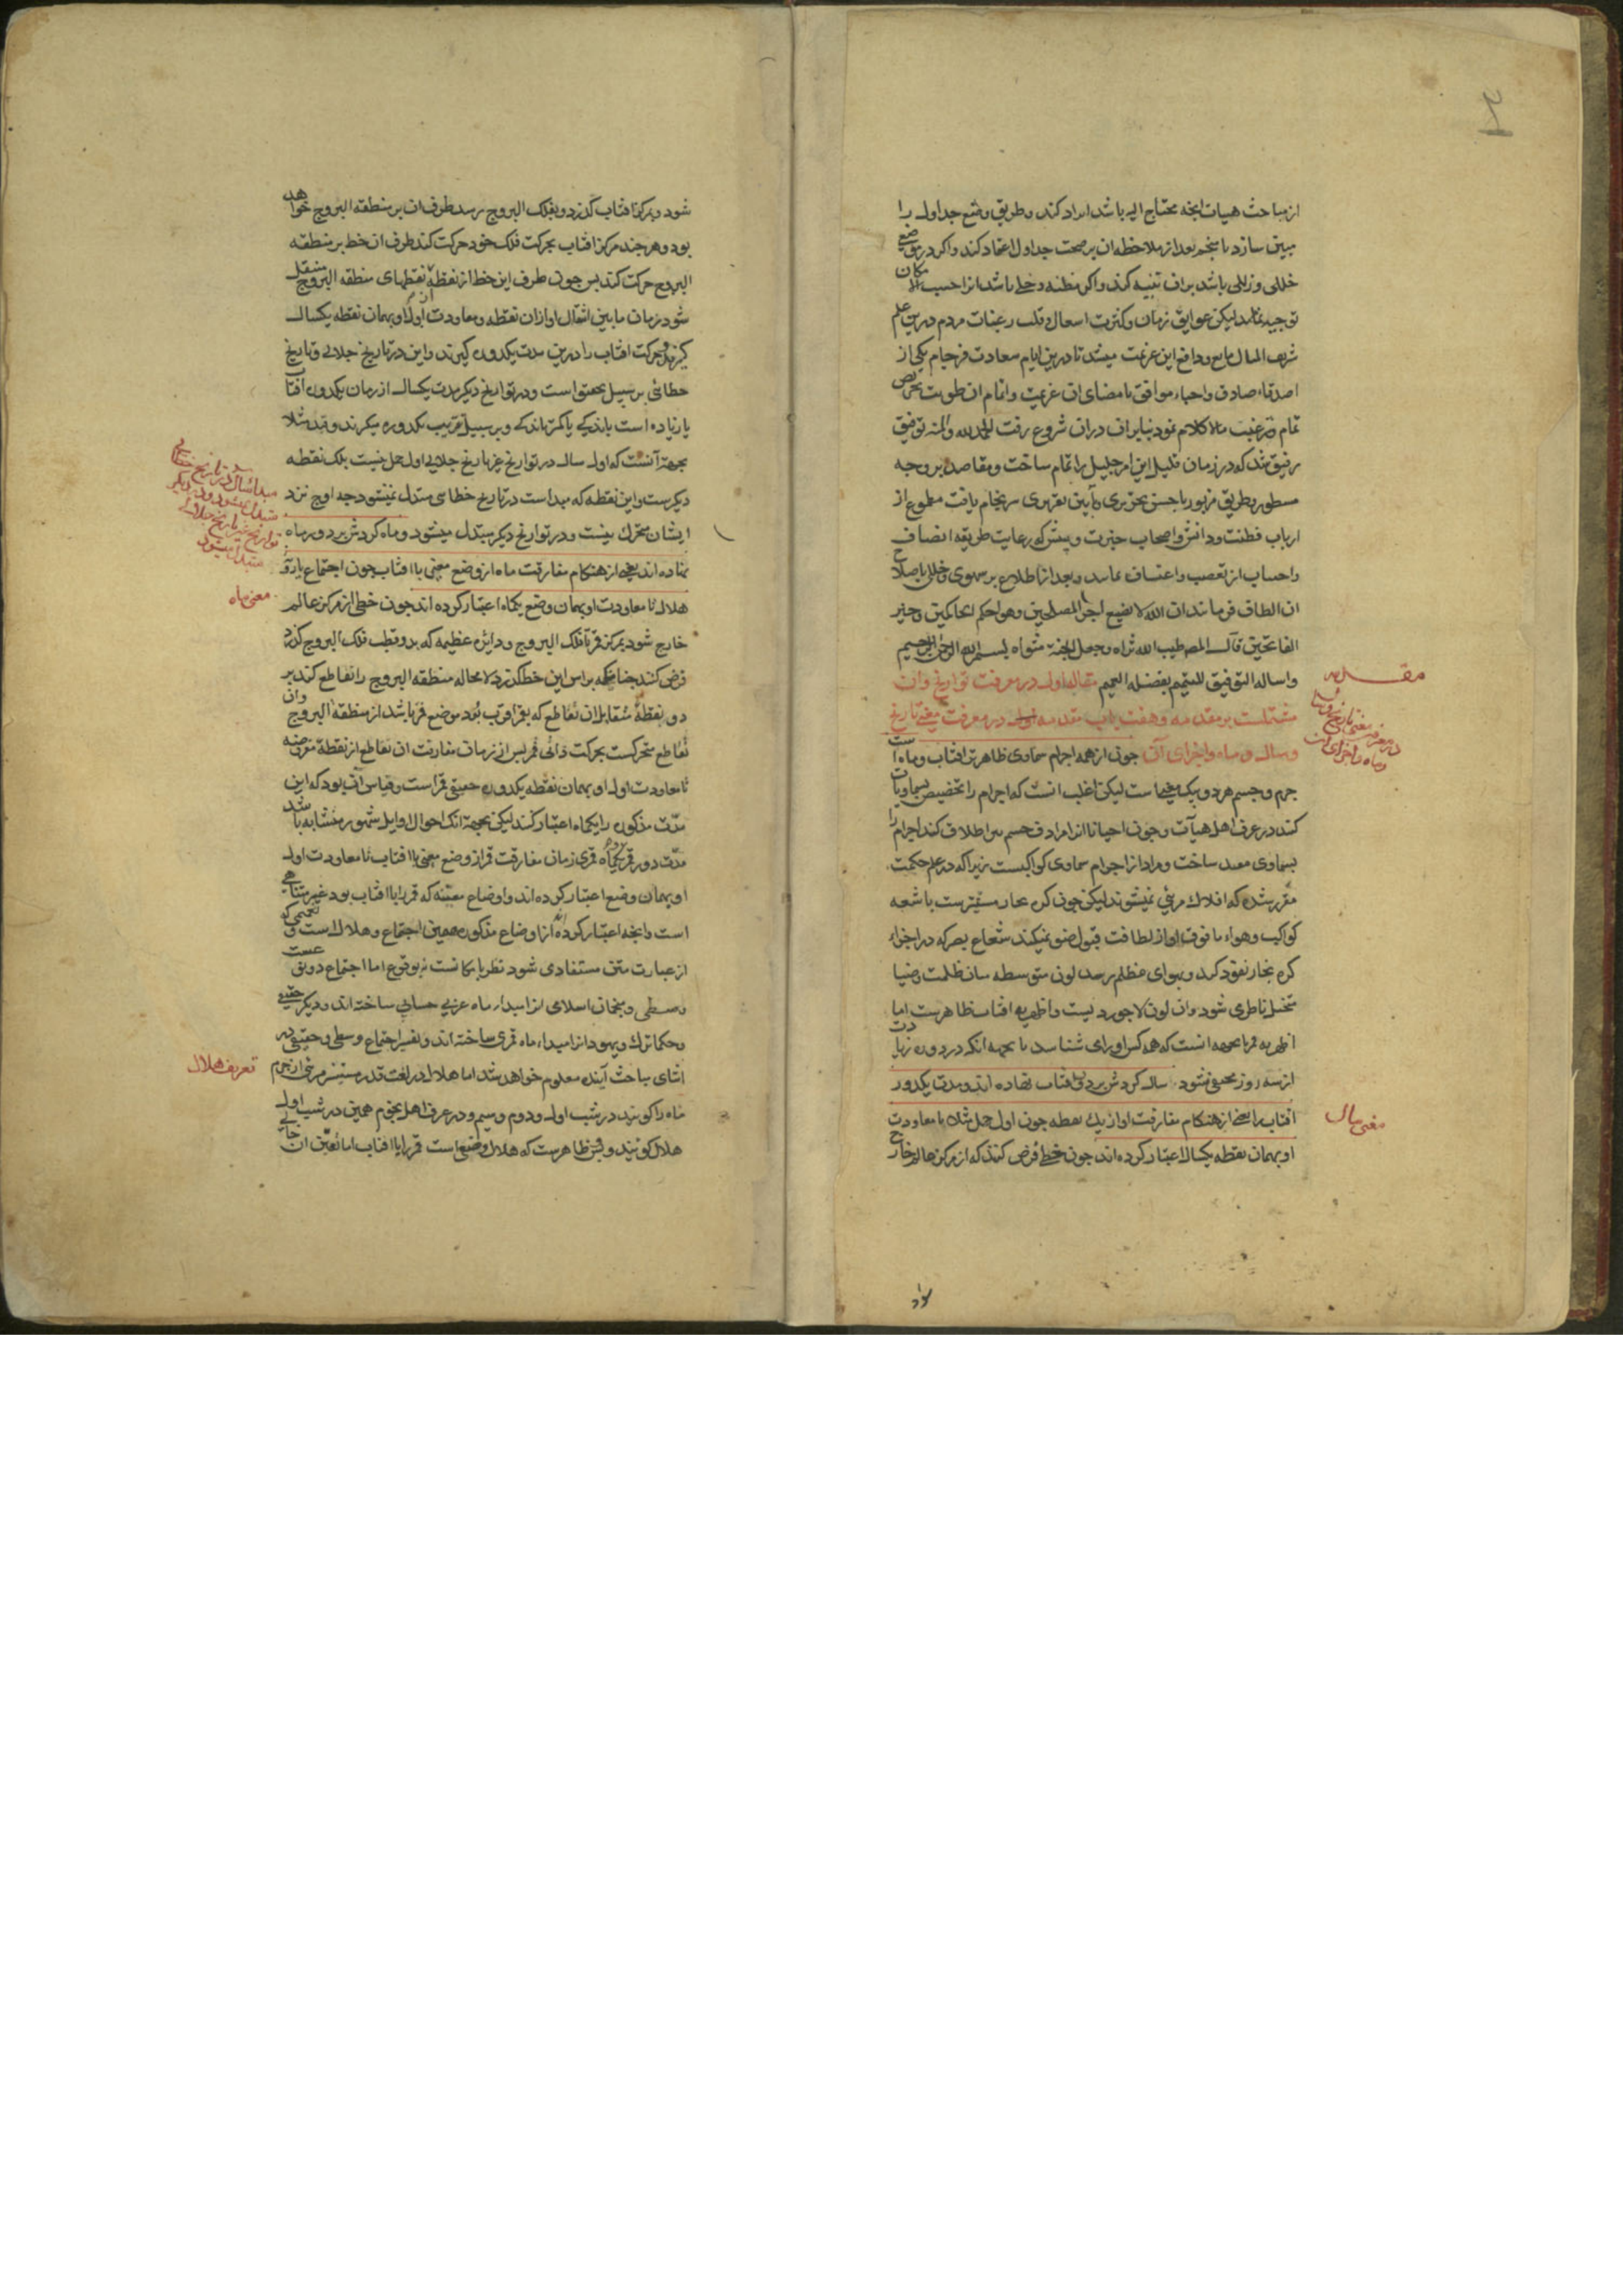 از مباحث هیات انجه محتاج الیه باشد ایراد کند و طریق وضع جداول را
مبین سازد تا منجم بعد از ملاحظه ان بر صحت جداول اعتماد کند و اکر در موضع
خللی و زللی باشد بران تنبیه کند و اکر مظنه دخلی باشد انرا حسب الامکان
توجیه نماید لیکن عوایق زمان و کثرت اشغال و قلت رغبات مردم درین علم
شریف المنال مانع و دافع این عزیمت میشد تا درین ایام سعادت فرجام یکی از
اصدقاء صادق و احباء موافق بامضای ان عزیمت و اتمام ان طویت تحریص
تمام و ترغیب مالاکلام نمود بنابران دران شروع رفت الحمدلله والمنه توفیق
رفیق شد که در زمان قلیل این امر جلیل را تمام ساخت و مقاصد بر وجه
مسطور و طریق مزبور باحسن تحریری و این تقریری سرنجام یافت مطموع از
ارباب فطنت و دانش و اصحاب خبرت و بینش که رعایت طریقه انصاف
و اجتناب از تعصب و اعتساف نمایند و بعد از اطلاع بر سهوی و خللی باصلاح
ان الطاف فرمایند ان الله لا یضیع اجر المصلحین و هو احکم الحاکمین و خیر
الفاتحین قال المصـ طیب الله ثراه و جعل الجنة مثواه بسم الله الرحمن الرحیم
و اساله التوفیق للتتمیم بفضله العمیم مقاله اول در معرفت تواریخ و ان
مشتملست بر مقدمه و هفت باب مقدمه در معرفت معنی تاریخ
و سال و ماه و اجزای آن چون از همه اجرام سماوی ظاهرتر افتاب و ماه است
جرم و جسم هر دو بیک معنیست لیکن اغلب انست که اجرام را تخصیص بسماویات
کنند در عرف اهل هیآت و چون احیانا انرا مرادف جسم اطلاق کنند اجرام را
بسماوی مقید ساخت و مراد از اجرام سماوی کواکبست زیرا که در علم حکمت
مقرر شده که افلاک مرئی نمیشوند لیکن چون کره بخار مستنیرست باشعه
کواکب و هواء ما فوق او از لطافت قبول ضو نمیکند شعاع بصر که در اجزاء
کره بخار نفوذ کرد و بهوای مظلم رسد لون متوسطه میان ظلمت و ضیا
متخیل ناظر می شود و ان لون لاجوردیست و اظهریه افتاب ظاهرست اما
اظهریه قمر بجهه انست که همه کس او را می شناسد یا بجهه انکه در دوره زیادت
از سه روز مخفی نشود سال کردش بر دور افتاب نهاده اند و مدت یکدور
افتاب را یعنی از هنکام مفارقت او از یک نقطه چون اول حمل مثلا تا معاودت
او بهمان نقطه یکسال اعتبار کرده اند چون خطی فرض کنند که از مرکز عالم خارج
مقدمه
در معرفت معنی تاریخ و سال
و ماه و اجزای ان
معنی سال
شود و بمرکز افتاب کذرد و بفلک البروج رسد طرف ان بر منطقه البروج خواهد
بود و هرچند مرکز افتاب بحرکت فلک خود حرکت کند طرف ان خط بر منطقه
البروج حرکت کند پس چون طرف این خط از نقطه نقطهای منطقه البروج منتقل
شود زمان ما بین انتقال او ازان نقطه و معاودت او بهمان نقطه یکسال
کیرند و حرکت افتاب را درین مدت یکدوره کیرند و این در تاریخ جلالی و تاریخ
خطائی بر سبیل تحقیق است و در تواریخ دیکر مدت یکسال از زمان یکدوره افتاب
یا زیاده است باندکی یا کمتر باندکی و بر سبیل تقریب یکدوره میکیرند و قید مثلا
بجهة آنست که اول سال در تواریخ غیر تاریخ جلالی اول حمل نیست بلک نقطه
دیکرست و این نقطه که مبدا است در تاریخ خطای متبدل نمیشود چه اوج نزد
ایشان متحرک نیست و در تواریخ دیکر متبدل میشود و ماه کردش بر دور ماه
نهاده اند یعنی از هنکام مفارقت ماه از وضع معینی با افتاب چون اجتماع یا رؤیت
هلال تا معاودت او بهمان وضع یکماه اعتبار کرده اند چون خطی از مرکز عالم
خارج شود بمرکز قمر تا فلک البروج و دائره عظیمه که بدو قطب فلک البروج کذرد
فرض کنند چنانکه براس این خط کذرد لا محاله منطقه البروج را تقاطع کند بر
دو نقطه متقابل ان تقاطع که بقمر اقرب بود موضع قمر باشد از منطقه البروج و ان
تقاطع متحرکست بحرکت ذاتی قمر پس از زمان مفارقت ان تقاطع از نقطه مفروضه
تا معاودت اول او بهمان نقطه یکدوره حقیقی قمر است و قیاس آن بود که این
مدت مذکوره را یکماه اعتبار کنند لیکن بجهة انک احوال اوایل شهور متشابه باشد
مدت دور قمر یکماه قمری زمان مفارقت قمر از وضع معینی با افتاب تا معاودت اول
او بهمان وضع اعتبار کرده اند و اوضاع معینه که قمر را با افتاب بود غیر متناهی
است و انچه اعتبار کرده اند از اوضاع مذکوره همین اجتماع و هلال است و تعمیمی که
از عبارت متن مستفاد می شود نظر بامکانست نه بوقوع اما اجتماع دو قسمست
وسطی و منجمان اسلامی انرا مبداء ماه عربی حسابی ساخته اند و دیکر حقیقی
و حکماء ترک و یهود انرا مبداء ماه قمری ساخته اند و تفسیر اجتماع وسطی و حقیقی در
اثنای مباحث آینده معلوم خواهد شد اما هلال در لغت قدر مستنیر مرئی از جرم
ماه را کویند در شب اول و دوم و سیم و در عرف اهل نجوم همین در شب اول
هلال کویند و بس ظاهرست که هلال وضعی است قمر را با افتاب اما تعین ان
مبدا سال در تاریخ خطائی
متبدل نمیشود و در دیکر
تواریخ غیر تاریخ جلالی
متبدل میشود
معنی ماه
تعریف هلال